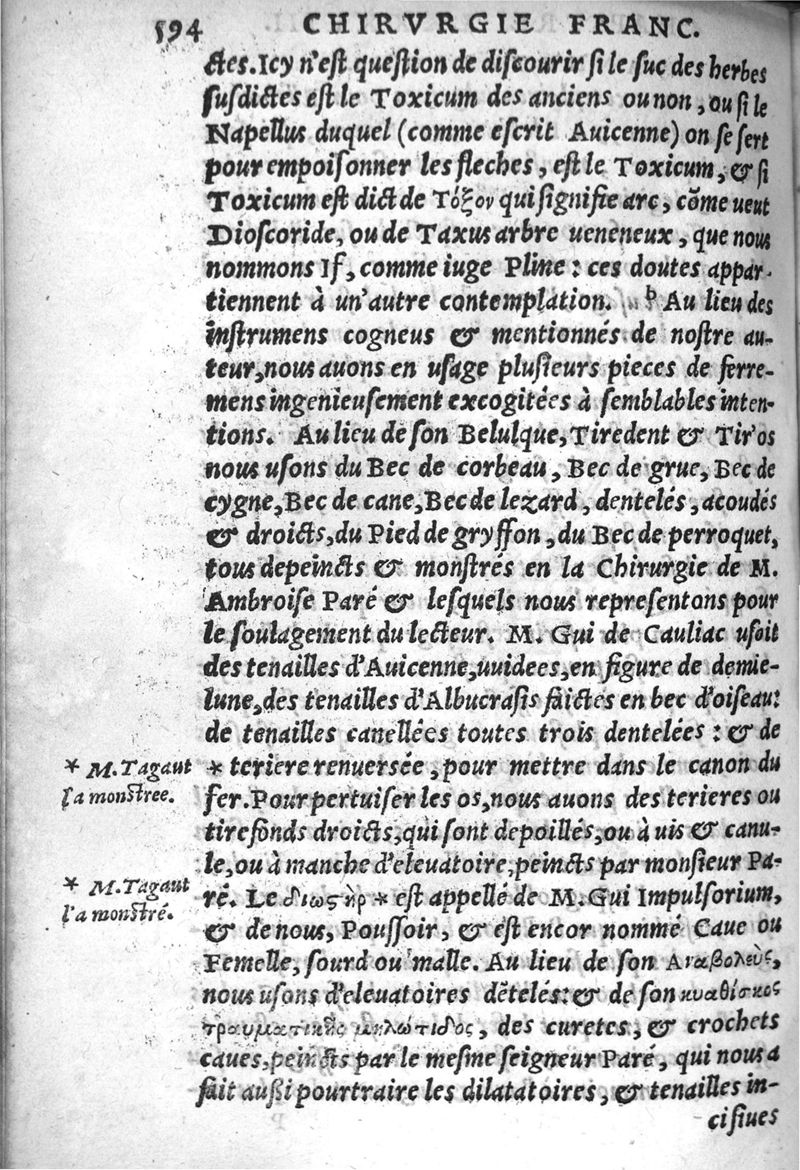 594 CHIRVRGIE FRANC.
ctes. Icy n'eſt queſtion de diſcourir ſi le ſuc des herbes
ſuſdictes eſt le Toxicum des anciens ou non, ou ſi le
Napellus duquel (comme eſcrit Auicenne) on ſe ſert
pour empoiſonner les fleches, eſt le Toxicum, & ſi
Toxicum eſt dict de Τόξον qui ſignifie arc, cõme ueut
Dioſcoride, ou de Taxus arbre ueneneux, que nous
nommons If, comme iuge Pline: ces doutes appar-
tiennent à un'autre contemplation. b Au lieu des
inſtrumens cogneus & mentionnés de noſtre au-
teur, nous auons en uſage pluſieurs pieces de ferre-
mens ingenieuſement excogitées à ſemblables inten-
tions. Au lieu de ſon Belulque, Tiredent & Tir'os
nous uſons du Bec de corbeau, Bec de grue, Bec de
cygne, Bec de cane, Bec de lezard, dentelés, acoudés
& droicts, du Pied de gryffon, du Bec de perroquet,
tous depeincts & monſtrés en la Chirurgie de M.
Ambroiſe Paré & leſquels nous repreſentons pour
le ſoulagement du lecteur. M. Gui de Cauliac uſoit
des tenailles d'Auicenne, uuidees, en figure de demie-
lune, des tenailles d'Albucraſis faictes en bec d'oiſeau:
de tenailles canellées toutes trois dentelées: & de
* M. Tagaut
l'a monſtree.
* teriere renuersée, pour mettre dans le canon du
fer. Pour pertuiſer les os, nous auons des terieres ou
tirefonds droicts, qui ſont depoillés, ou à uis & canu-
le, ou à manche d'eleuatoire, peincts par monſieur Pa-
* M. Tagaut
l'a monſtré.
ré. Le διωςὴρ * eſt appellé de M. Gui Impulſorium,
& de nous, Pouſſoir, & eſt encor nommé Caue ou
Femelle, ſourd ou malle. Au lieu de ſon Αναβολεὺς,
nous uſons d'eleuatoires dẽtelés: & de ſon κυαθίσκος
τραυματικῆς μηλώτιδος, des curetes, & crochets
caues, peincts par le meſme ſeigneur Paré, qui nous a
fait auſſi pourtraire les dilatatoires, & tenailles in-
ciſiues